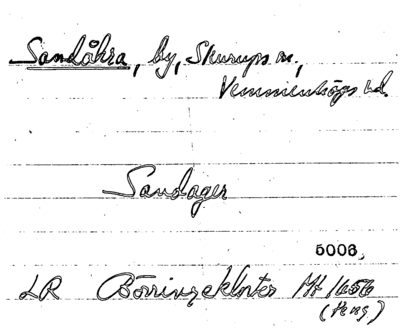 Sandåkra, by, Skurups sn,
Vemmenhögs hd.
Sandager
5006,
LR Börringekloster Mt 1656
(Peng)